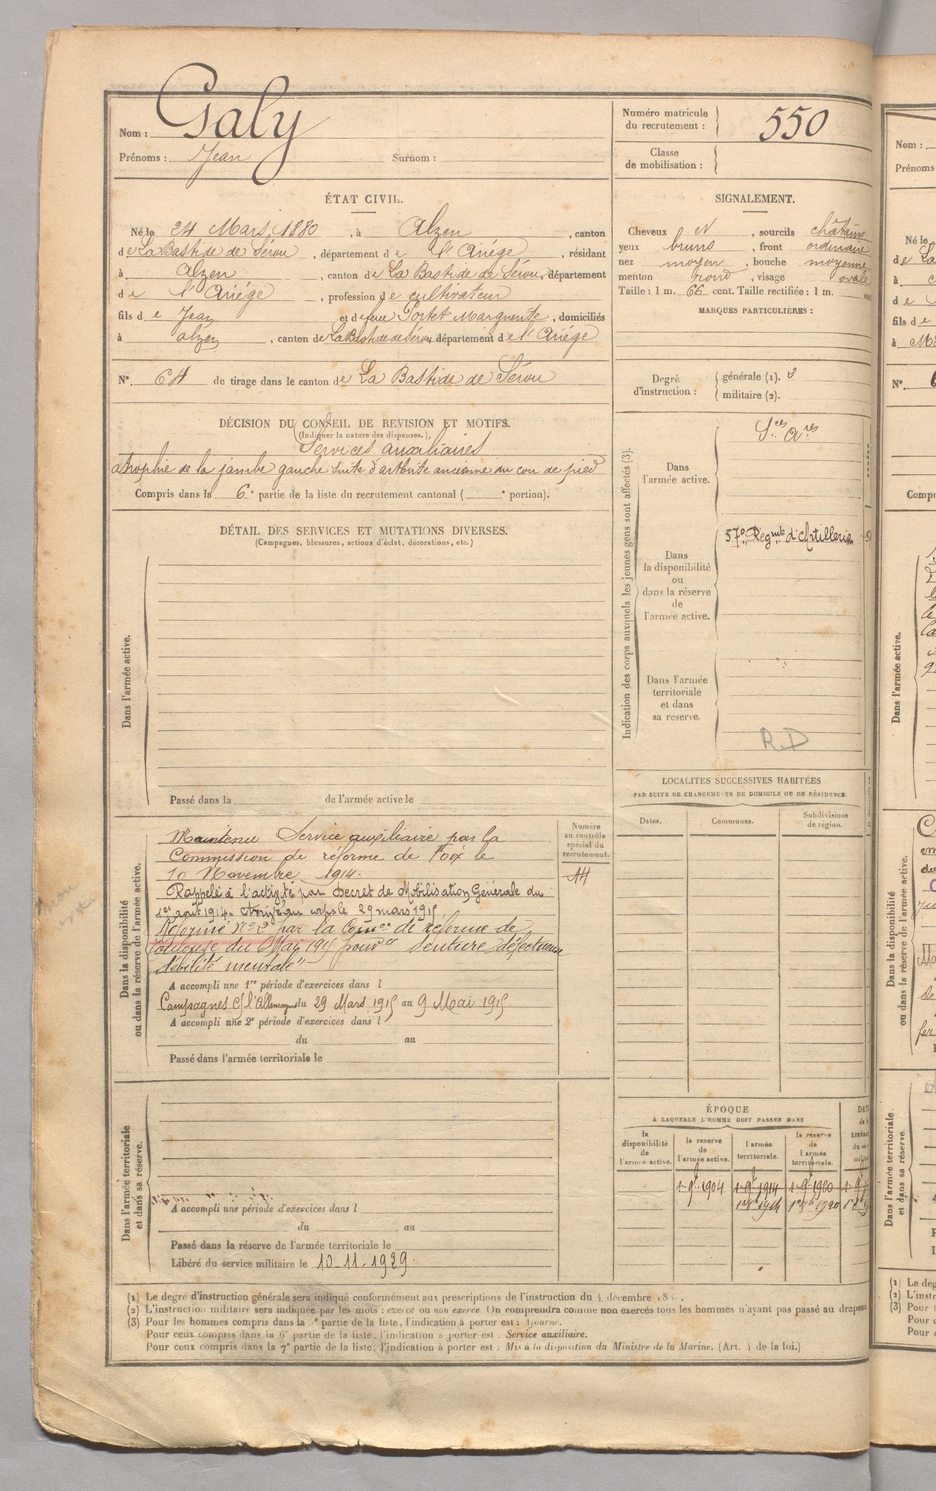 Nom : Galy
Prénoms : Jean Surnom :
Numéro matricule du recrutement : 550
Classe de mobilisation :
ÉTAT CIVIL.
Né le 24 Mars 1880, à Alzen, canton
de La Bastide de Sérou, département de l'Ariége, résidant
à Alzen, canton de La Bastide de Sérou, département
de l'Ariége, profession de cultivateur
fils de Jean et de feue Portet Marguerite, domiciliés
à Alzen, canton de La Bastide de Sérou, département de l'Ariége
N° 64 de tirage dans le canton de La Bastide de Sérou
SIGNALEMENT.
Cheveux et, sourcils châtains
yeux bruns, front ordinaire
nez moyen, bouche moyenne
menton rond, visage ovale
Taille : 1 m. 66 cent. Taille rectifiée : 1 m.
MARQUES PARTICULIÈRES :
Degré d'instruction : générale (1). 3
militaire (2).
DÉCISION DU CONSEIL DE REVISION ET MOTIFS.
(Indiquer la nature des dispenses.)
Services auxiliaires
atrophie de la jambe gauche suite d'arthrite ancienne du cou de pied
Compris dans la 6e partie de la liste du recrutement cantonal (e portion).
Indication des corps auxquels les jeunes gens sont affectés (3).
Dans l'armée active.
Sces Ares
Dans la disponibilité ou dans la réserve de l'armée active.
57e Regmt d'Artillerie
Dans l'armée territoriale et dans sa reserve.
R.D
DÉTAIL DES SERVICES ET MUTATIONS DIVERSES.
(Campagnes, blessures, actions d'éclat, décorations, etc.)
Dans l'armée active.
Passé dans la de l'armée active le
Dans la disponibilité ou dans la réserve de l'armée active.
Maintenu Service auxiliaire par la
Commission de réforme de Foix le
10 Novembre 1914.
Rappelé à l'activité par Décret de Mobilisation Générale du
1er aout 1914. Arrivé au corps le 29 mars 1915
Réformé N° 2 par la Comon de réforme de
Toulouse du 6 Mai 1915 pour "denture défectueuse
débilité mentale"
A accompli une 1re période d'exercices dans l
Campagnes C/ l'Allemagne du 29 Mars 1915 au 9 Mai 1915
A accompli une 2e période d'exercices dans l
du au
Passé dans l'armée territoriale le
Numéro au contrôle spécial du recrutement.
Dans l'armée territoriale et dans sa réserve.
A accompli une période d'exercices dans l
du au
Passé dans la réserve de l'armée territoriale le
Libéré du service militaire le 10-11-1929
LOCALITÉS SUCCESSIVES HABITÉES
PAR SUITE DE CHANGEMENTS DE DOMICILE OU DE RÉSIDENCE.
Dates. Communes. Subdivisions de région.
ÉPOQUE
À LAQUELLE L'HOMME DOIT PASSER DANS
la disponibilité de l'armée active. la reserve de l'armée active. l'armée territoriale. la réserve de l'armée territoriale.
1904 1914 1920
(1) Le degré d'instruction générale sera indiqué conformément aux prescriptions de l'instruction du 4 décembre
(2) L'instruction militaire sera indiquée par les mots : exercé ou non exercé. On comprendra comme non exercés tous les hommes n'ayant pas passé au drapeau
(3) Pour les hommes compris dans la partie de la liste, l'indication à porter est : Ajourné.
Pour ceux compris dans la 6e partie de la liste, l'indication à porter est : Service auxiliaire.
Pour ceux compris dans la 7e partie de la liste, l'indication à porter est : Mis à la disposition du Ministre de la Marine. (Art. 4 de la loi.)